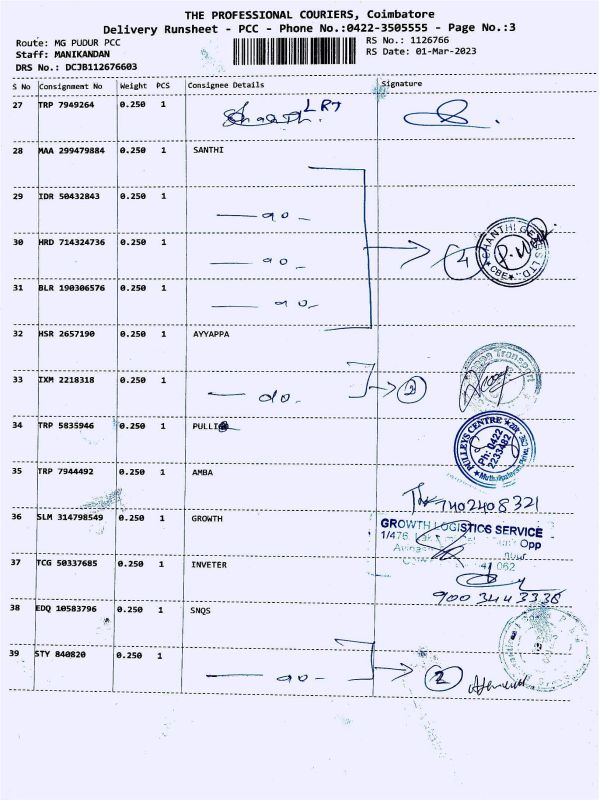 THE PROFESSIONAL COURIERS, Coimbatore
Delivery Runsheet - PCC - Phone No.:0422-3505555 - Page No.:3
Route: MG PUDUR PCC
RS No.: 1126766
Staff: MANIKANDAN
RS Date: 01-Mar-2023
DRS No.: DCJB112676603
S No Consignment No Weight PCS Consignee Details Signature
27 TRP 7949264 0.250 1
28 MAA 299479884 0.250 1 SANTHI
29 IDR 50432843 0.250 1
- do -
30 HRD 714324736 0.250 1
- do -
4
SHANTHI GEARS LTD.
CBE
31 BLR 190306576 0.250 1
- do -
32 HSR 2657190 0.250 1 AYYAPPA
33 IXM 2218318 0.250 1
- do -
2
Transport
34 TRP 5835946 0.250 1 PULLI
PULLEYS CENTRE
Ph: 0422
2233482
35 TRP 7944492 0.250 1 AMBA
7402408321
36 SLM 314798549 0.250 1 GROWTH
GROWTH LOGISTICS SERVICE
1/476,
Opp
37 TCG 50337685 0.250 1 INVETER
9003443336
38 EDQ 10583796 0.250 1 SNQS
39 STY 840820 0.250 1
- do -
2